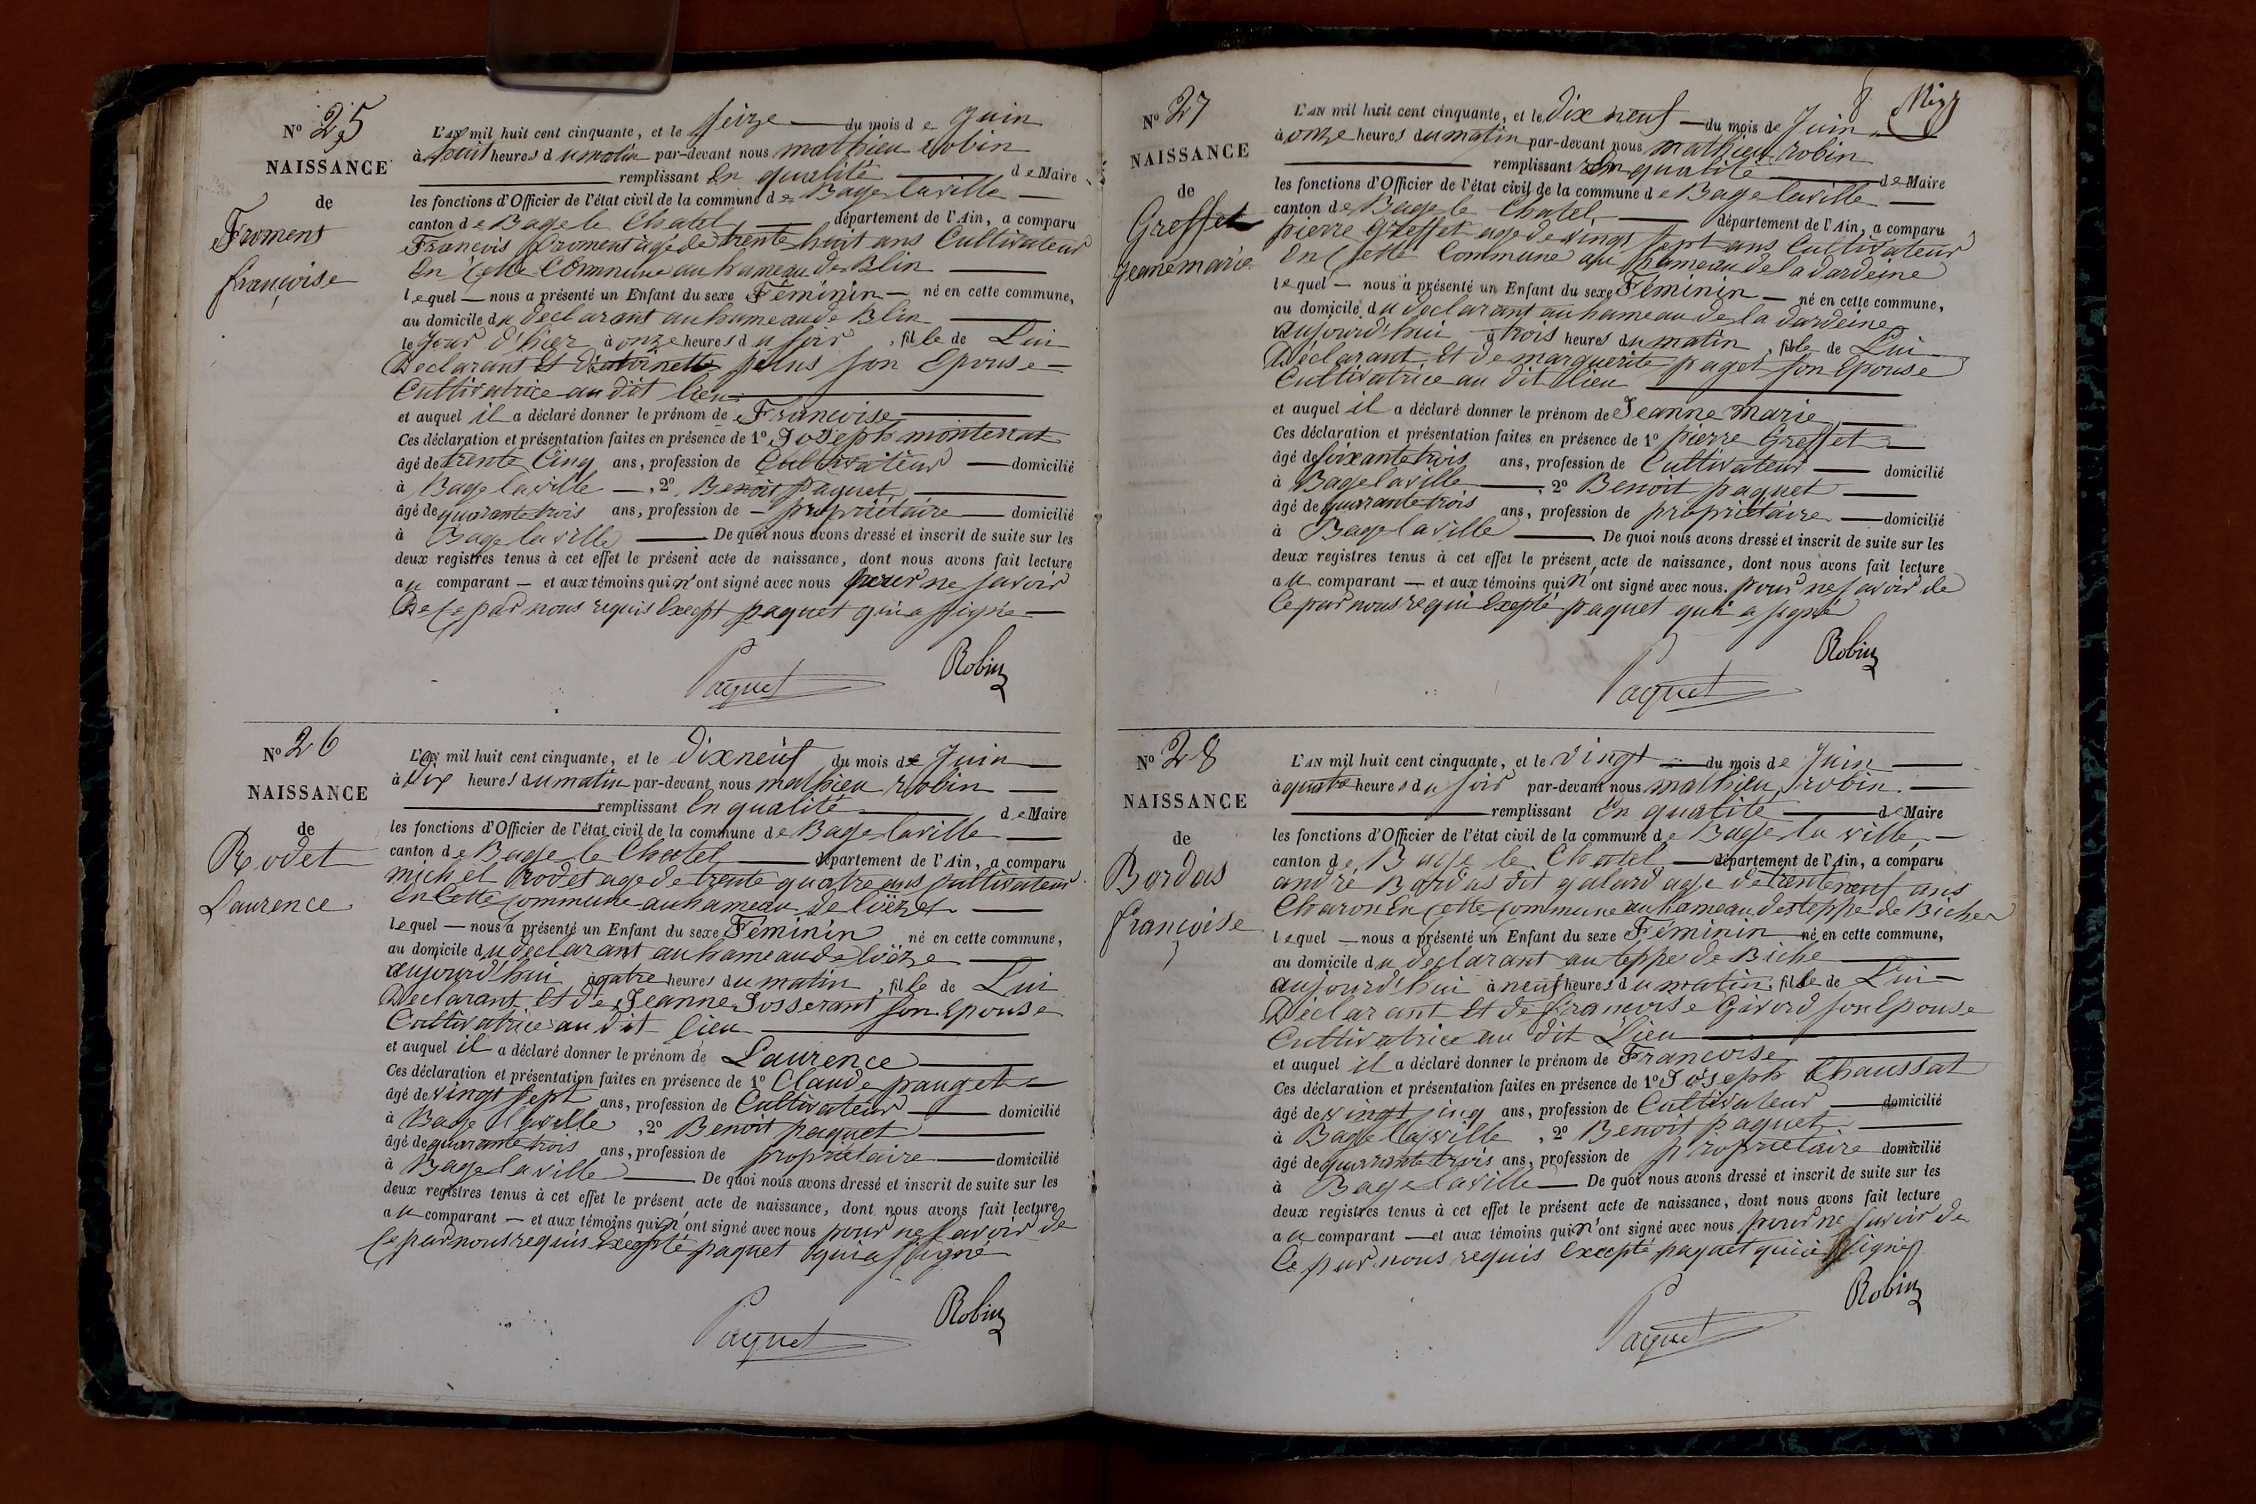 N° 25
NAISSANCE
de
Froment
françoise
L'AN mil huit cent cinquante, et le seize — du mois de Juin
à huit heures du matin par-devant nous mathieu robin
remplissant En qualité — de Maire
les fonctions d'Officier de l'état civil de la commune de Bage laville —
canton de Bage le Chatel — département de l'Ain, a comparu
François froment âgé de trente huit ans Cultivateur
En Cette Commune au hameau de Blin —
lequel — nous a présenté un Enfant du sexe Féminin — né en cette commune,
au domicile du declarant au hameau de Blin —
le Jour d'hier à onze heures du soir, fille de Lui
Declarant Et d'antoinette son Epouse —
Cultivatrice au dit lieu —
et auquel il a déclaré donner le prénom de Françoise —
Ces déclaration et présentation faites en présence de 1° Joseph monterrat
âgé de trente Cinq ans, profession de Cultivateur — domicilié
à Bage laville —, 2° Benoit paquet —
âgé de quarante trois ans, profession de — propriétaire — domicilié
à Bage la ville — De quoi nous avons dressé et inscrit de suite sur les
deux registres tenus à cet effet le présent acte de naissance, dont nous avons fait lecture
au comparant — et aux témoins qui n'ont signé avec nous pour ne savoir
De Ce par nous requis Except paquet qui a signé —
Paquet Robin
N° 26
NAISSANCE
de
Rodet
Laurence
L'AN mil huit cent cinquante, et le dix neuf du mois de Juin —
à dix heures du matin par-devant nous mathieu robin —
remplissant En qualité — de Maire
les fonctions d'Officier de l'état civil de la commune de Bage laville —
canton de Bage le Chatel — département de l'Ain, a comparu
michel Rodet age de trente quatre ans cultivateur
En Cette Commune au hameau de —
lequel — nous a présenté un Enfant du sexe Féminin né en cette commune,
au domicile du declarant au hameau de —
aujourd'hui à quatre heures du matin, fille de Lui
Declarant Et de Jeanne Josserant son Epouse
Cultivatrice au dit lieu —
et auquel il a déclaré donner le prénom de Laurence —
Ces déclaration et présentation faites en présence de 1° Claude pauget —
âgé de vingt sept ans, profession de Cultivateur — domicilié
à Bage laville, 2° Benoit paquet —
âgé de quarante trois ans, profession de propriétaire — domicilié
à Bage la ville — De quoi nous avons dressé et inscrit de suite sur les
deux registres tenus à cet effet le présent acte de naissance, dont nous avons fait lecture
au comparant — et aux témoins qui n'ont signé avec nous pour ne savoir de
Ce par nous requis Excepté paquet qui a signé
Paquet Robin
8
N° 27
NAISSANCE
de
Greffet
Jeanne marie
L'AN mil huit cent cinquante, et le dix neuf — du mois de Juin —
à onze heures du matin par-devant nous mathieu robin
remplissant En qualité — de Maire
les fonctions d'Officier de l'état civil de la commune de Bage laville —
canton de Bage le Chatel — département de l'Ain, a comparu
pierre Greffet age de vingt sept ans Cultivateur
En Cette Commune au hameau de la dardeine
lequel — nous a présenté un Enfant du sexe Féminin — né en cette commune,
au domicile du declarant au hameau de la dardeine
aujourd'hui à trois heures du matin, fille de Lui
Declarant Et de marguerite paget son Epouse
Cultivatrice au dit lieu —
et auquel il a déclaré donner le prénom de Jeanne marie —
Ces déclaration et présentation faites en présence de 1° pierre Greffet —
âgé de soixante trois ans, profession de Cultivateur — domicilié
à Bage laville —, 2° Benoit paquet —
âgé de quarante trois ans, profession de propriétaire — domicilié
à Bage la ville — De quoi nous avons dressé et inscrit de suite sur les
deux registres tenus à cet effet le présent acte de naissance, dont nous avons fait lecture
au comparant — et aux témoins qui n'ont signé avec nous. pour ne savoir de
Ce par nous requi Excepté paquet qui a signé
Paquet Robin
N° 28
NAISSANCE
de
Bordas
françoise
L'AN mil huit cent cinquante, et le vingt — du mois de Juin —
à quatre heures du soir par-devant nous mathieu robin. —
remplissant En qualité — de Maire
les fonctions d'Officier de l'état civil de la commune de Bage la ville, —
canton de Bage le Chatel — département de l'Ain, a comparu
andré Bordas dit galard age de trente neuf ans
Charon En Cette Commune au hameau des teppe de Biche
lequel — nous a présenté un Enfant du sexe Féminin — né en cette commune,
au domicile du declarant au teppe de Biche —
aujourd'hui à neuf heures du matin. fille de Lui —
Declarant Et de françoise Givord son Epouse
Cultivatrice au dit Lieu —
et auquel il a déclaré donner le prénom de Françoise —
Ces déclaration et présentation faites en présence de 1° Joseph Chaussat
âgé de vingt cinq ans, profession de Cultivateur — domicilié
à Bage laville, 2° Benoit paquet —
âgé de quarante trois ans, profession de propriétaire domicilié
à Bage laville — De quoi nous avons dressé et inscrit de suite sur les
deux registres tenus à cet effet le présent acte de naissance, dont nous avons fait lecture
au comparant — et aux témoins qui n'ont signé avec nous pour ne savoir de
Ce par nous requis Excepté paquet qui a signé
Paquet Robin